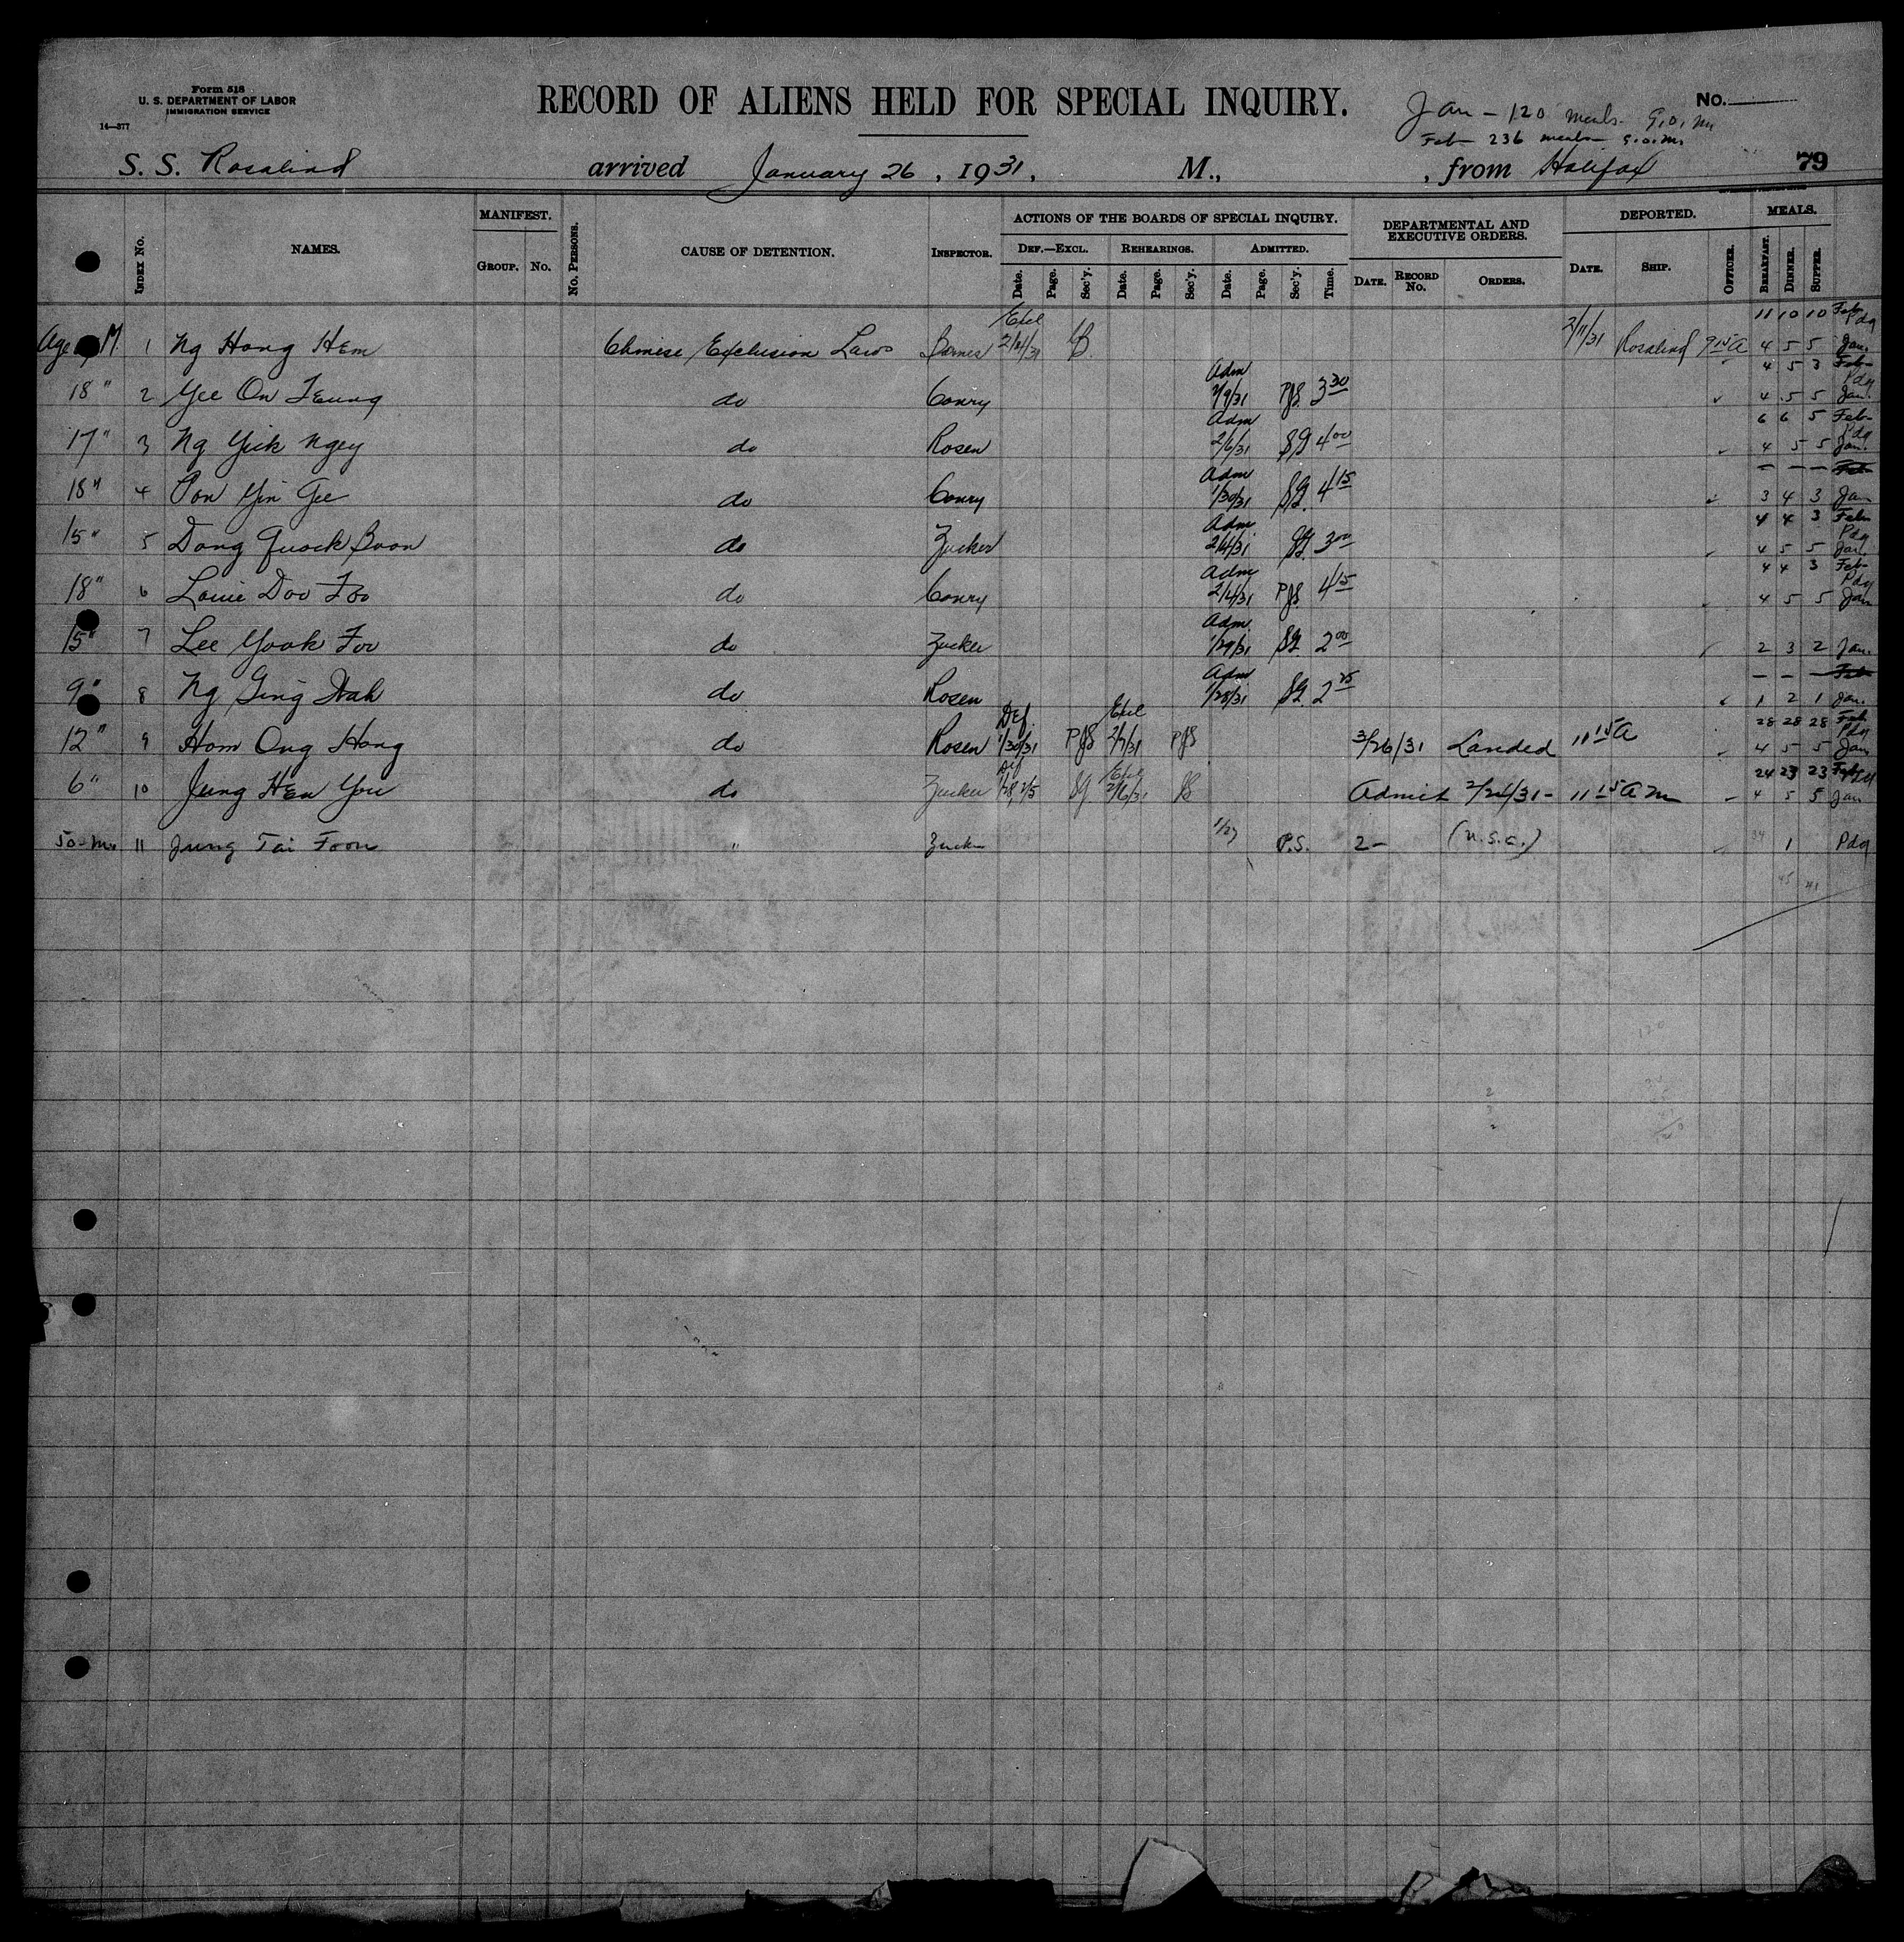 Form 518
U. S. DEPARTMENT OF LABOR
IMMIGRATION SERVICE
14—377
RECORD OF ALIENS HELD FOR SPECIAL INQUIRY.
No.
Jan - 120 meals. G.O.M.
Feb - 236 meals G.O.M.
S. S. Rosalind arrived January 26, 1931, M., , from Halifax 79
INDEX No. NAMES. MANIFEST. GROUP. No. No. PERSONS. CAUSE OF DETENTION. INSPECTOR. ACTIONS OF THE BOARDS OF SPECIAL INQUIRY. DEF.—EXCL. Date. Page. Sec'y. REHEARINGS. Date. Page. Sec'y. ADMITTED. Date. Page. Sec'y. Time. DEPARTMENTAL AND EXECUTIVE ORDERS. DATE. RECORD No. ORDERS. DEPORTED. DATE. SHIP. OFFICER. MEALS. BREAKFAST. DINNER. SUPPER.
Excl 11 10 10 Feb Pdq
Age M 1 Ng Hong Hem Chinese Exclusion Laws Barnes 2/11/31 Rosalind 9 15 A 4 5 5 Jan.
Adm 4 5 3 Feb Pdq
18" 2 Yee On Teung do Conry 2/9/31 PJS 3 30 4 5 5 Jan.
Adm 6 6 5 Feb Pdq
17" 3 Ng Yick Ngey do Rosen 2/6/31 SG 4 00 4 5 5 Jan.
Adm — — — Feb
18" 4 Pon Yin Gee do Conry 1/30/31 SG. 4 15 3 4 3 Jan
Adm 4 4 3 Feb Pdq
15" 5 Dong Quock Boon do Zucker 2/4/31 SG 3 00 4 5 5 Jan.
Adm 4 4 3 Feb Pdq
18" 6 Louie Doo Foo do Conry 2/4/31 PJS 4 15 4 5 5 Jan
Adm
15" 7 Lee Yook Foo do Zucker 1/29/31 SG. 2 00 2 3 2 Jan.
Adm — — — Feb
9" 8 Ng Ging Wah do Rosen 1/28/31 SG. 2 25 1 2 1 Jan.
Def. Excl 28 28 28 Feb Pdq
12" 9 Hom Ong Hong do Rosen 1/30/31 PJS 2/7/31 PJS 3/26/31 Landed 11 15 A 4 5 5 Jan
Def Excl 24 23 23 Feb Pdq
6" 10 Jung Hen You do Zucker 1/28, 2/5 SG 2/6/31 Admit 2/24/31 - 11 15 A m 4 5 5 Jan
50-M. 11 Jung Tai Foon " Zucker 1/27 P.S. 2- (U.S.C.) 1 Pdq
45 41
120